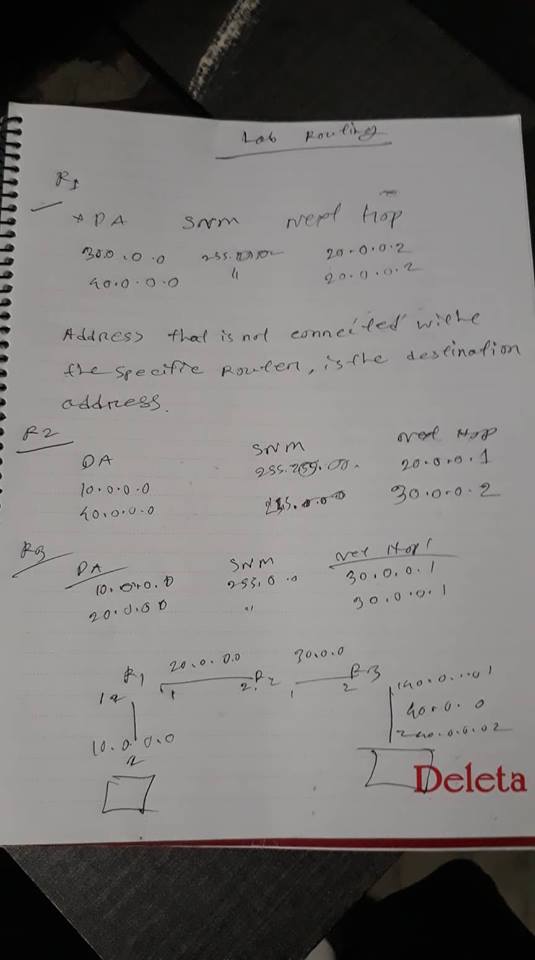 Lab Routing
R1
* DA SNM Next Hop
30.0.0.0 20.0.0.2
40.0.0.0 " 20.0.0.2
Address that is not connected withe
the specific Router, is the destination
address.
R2
DA SNM Next Hop
10.0.0.0 20.0.0.1
40.0.0.0 30.0.0.2
R3
DA SNM Next Hop
10.0.0.0 255.0.0 30.0.0.1
20.0.0.0 " 30.0.0.1
20.0.0.0 30.0.0
R1 1 2 R2 1 2 R3
40.0.0
10.0.0.0
Deleta